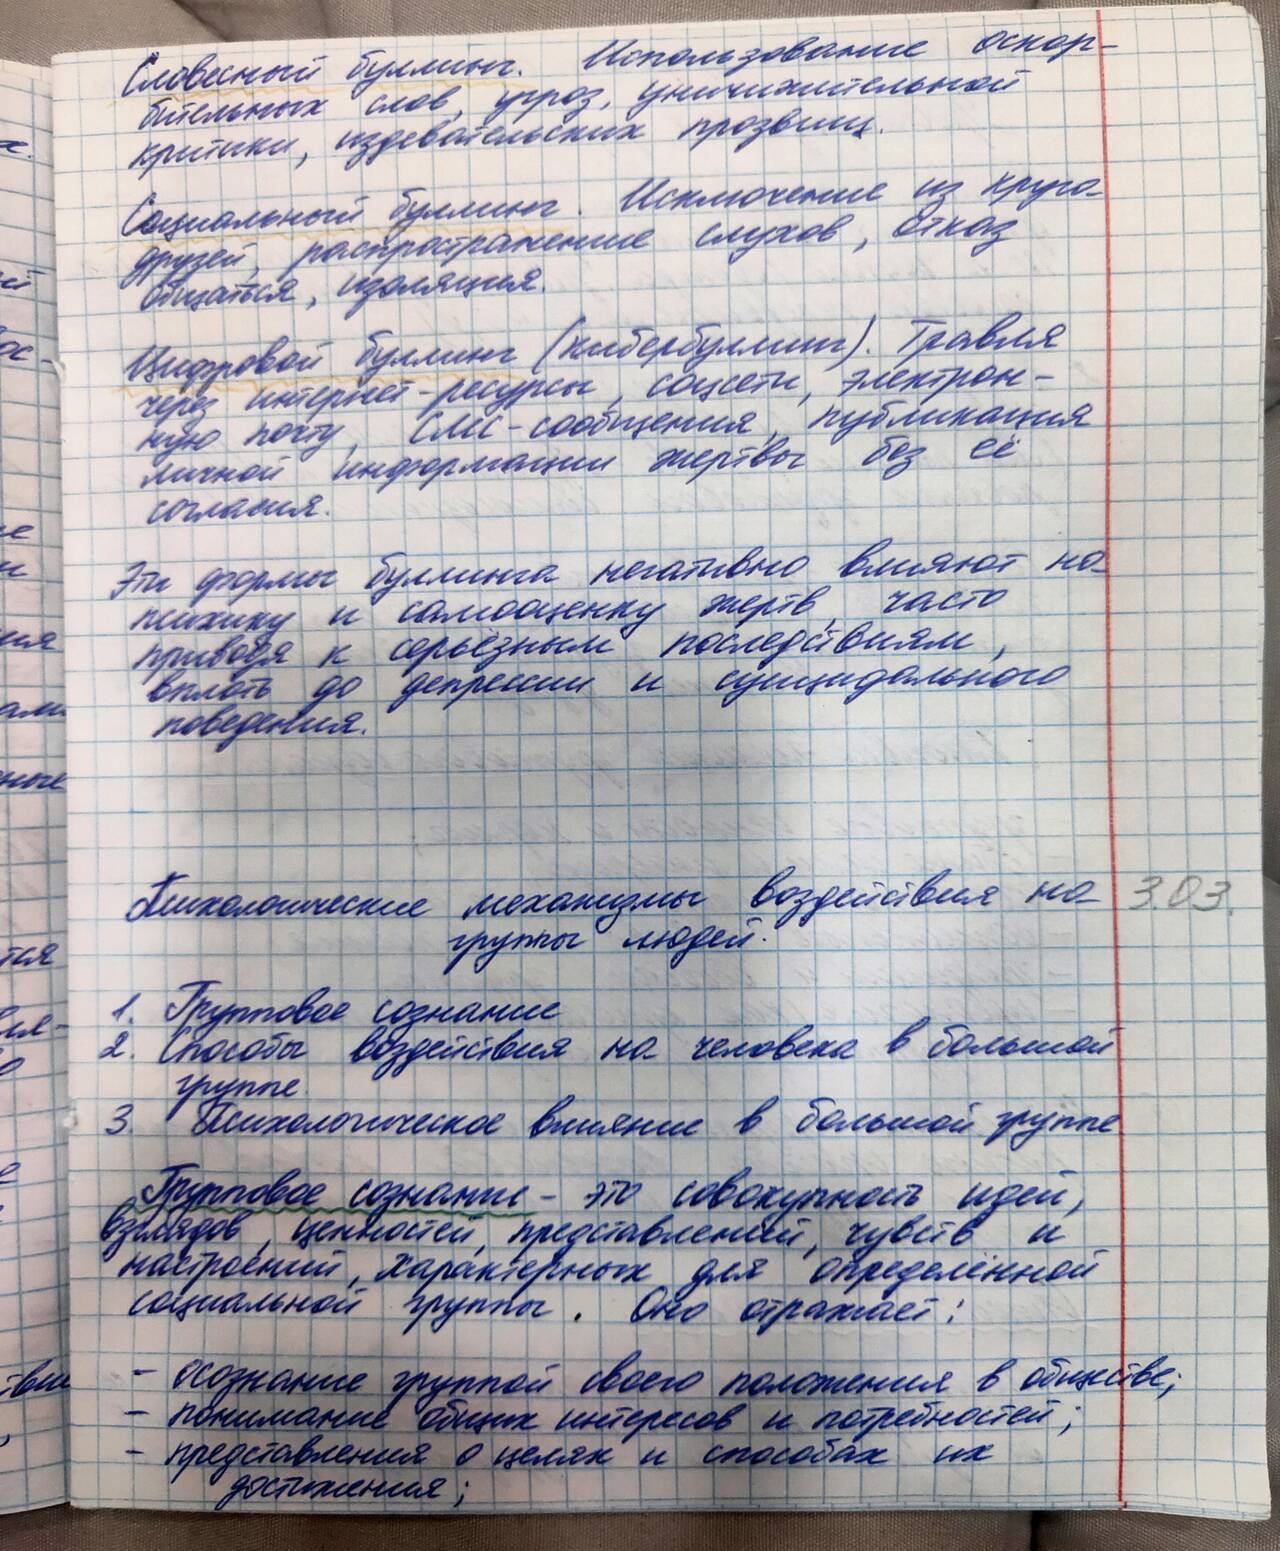 Словесный буллинг. Использование оскор-
бительных слов, угроз, уничижительной
критики, издевательских прозвищ.
Социальный буллинг. Исключение из круга
друзей, распространение слухов, отказ
общаться, изоляция.
Цифровой буллинг (кибербуллинг). Травля
через интернет-ресурсы, соцсети, электрон-
ную почту, СМС-сообщения, публикация
личной информации жертвы без её
согласия.
Эти формы буллинга негативно влияют на
психику и самооценку жертв, часто
приводя к серьёзным последствиям,
вплоть до депрессии и суицидального
поведения.
Психологические механизмы воздействия на 3.03.
группы людей.
1. Групповое сознание
2. Способы воздействия на человека в большой
группе.
3. Психологическое влияние в большой группе
Групповое сознание - это совокупность идей,
взглядов, ценностей, представлений, чувств и
настроений, характерных для определённой
социальной группы. Оно отражает:
- осознание группой своего положения в обществе;
- понимание общих интересов и потребностей;
- представления о целях и способах их
достижения;